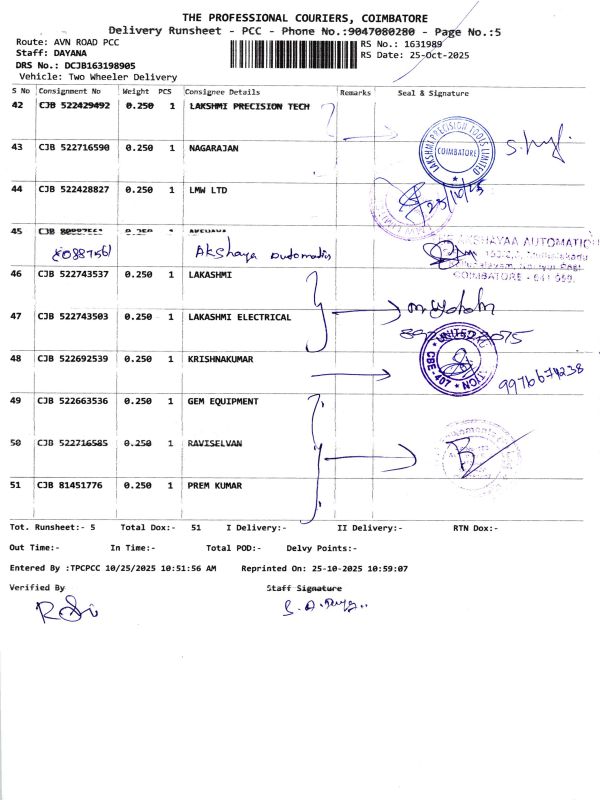 THE PROFESSIONAL COURIERS, COIMBATORE
Delivery Runsheet - PCC - Phone No.:9047080280 - Page No.:5
Route: AVN ROAD PCC
RS No.: 1631989
Staff: DAYANA
RS Date: 25-Oct-2025
DRS No.: DCJB163198905
Vehicle: Two Wheeler Delivery
S No Consignment No Weight PCS Consignee Details Remarks Seal & Signature
42 CJB 522429492 0.250 1 LAKSHMI PRECISION TECH
43 CJB 522716590 0.250 1 NAGARAJAN
LAKSHMI PRECISION TOOLS LIMITED
COIMBATORE
44 CJB 522428827 0.250 1 LMW LTD
25/10/25
45 CJB
80887561 Akshaya Automatis
AKSHAYAA AUTOMATIC
COIMBATORE - 641 659.
46 CJB 522743537 0.250 1 LAKASHMI
47 CJB 522743503 0.250 1 LAKASHMI ELECTRICAL
48 CJB 522692539 0.250 1 KRISHNAKUMAR
UNITED
CBE-407
9976674238
49 CJB 522663536 0.250 1 GEM EQUIPMENT
50 CJB 522716585 0.250 1 RAVISELVAN
51 CJB 81451776 0.250 1 PREM KUMAR
Tot. Runsheet:- 5 Total Dox:- 51 I Delivery:- II Delivery:- RTN Dox:-
Out Time:- In Time:- Total POD:- Delvy Points:-
Entered By :TPCPCC 10/25/2025 10:51:56 AM Reprinted On: 25-10-2025 10:59:07
Verified By Staff Signature